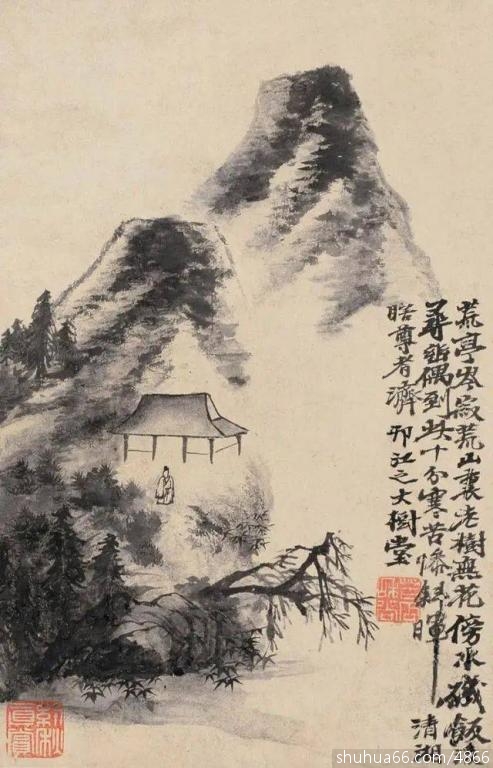 荒亭岑寂荒山裏老樹無花傍水矶飯
尋詩偶到此十分寒苦惨斜暉 清湘
睦尊者濟 邗江之大樹堂
shuhua66.com/4866